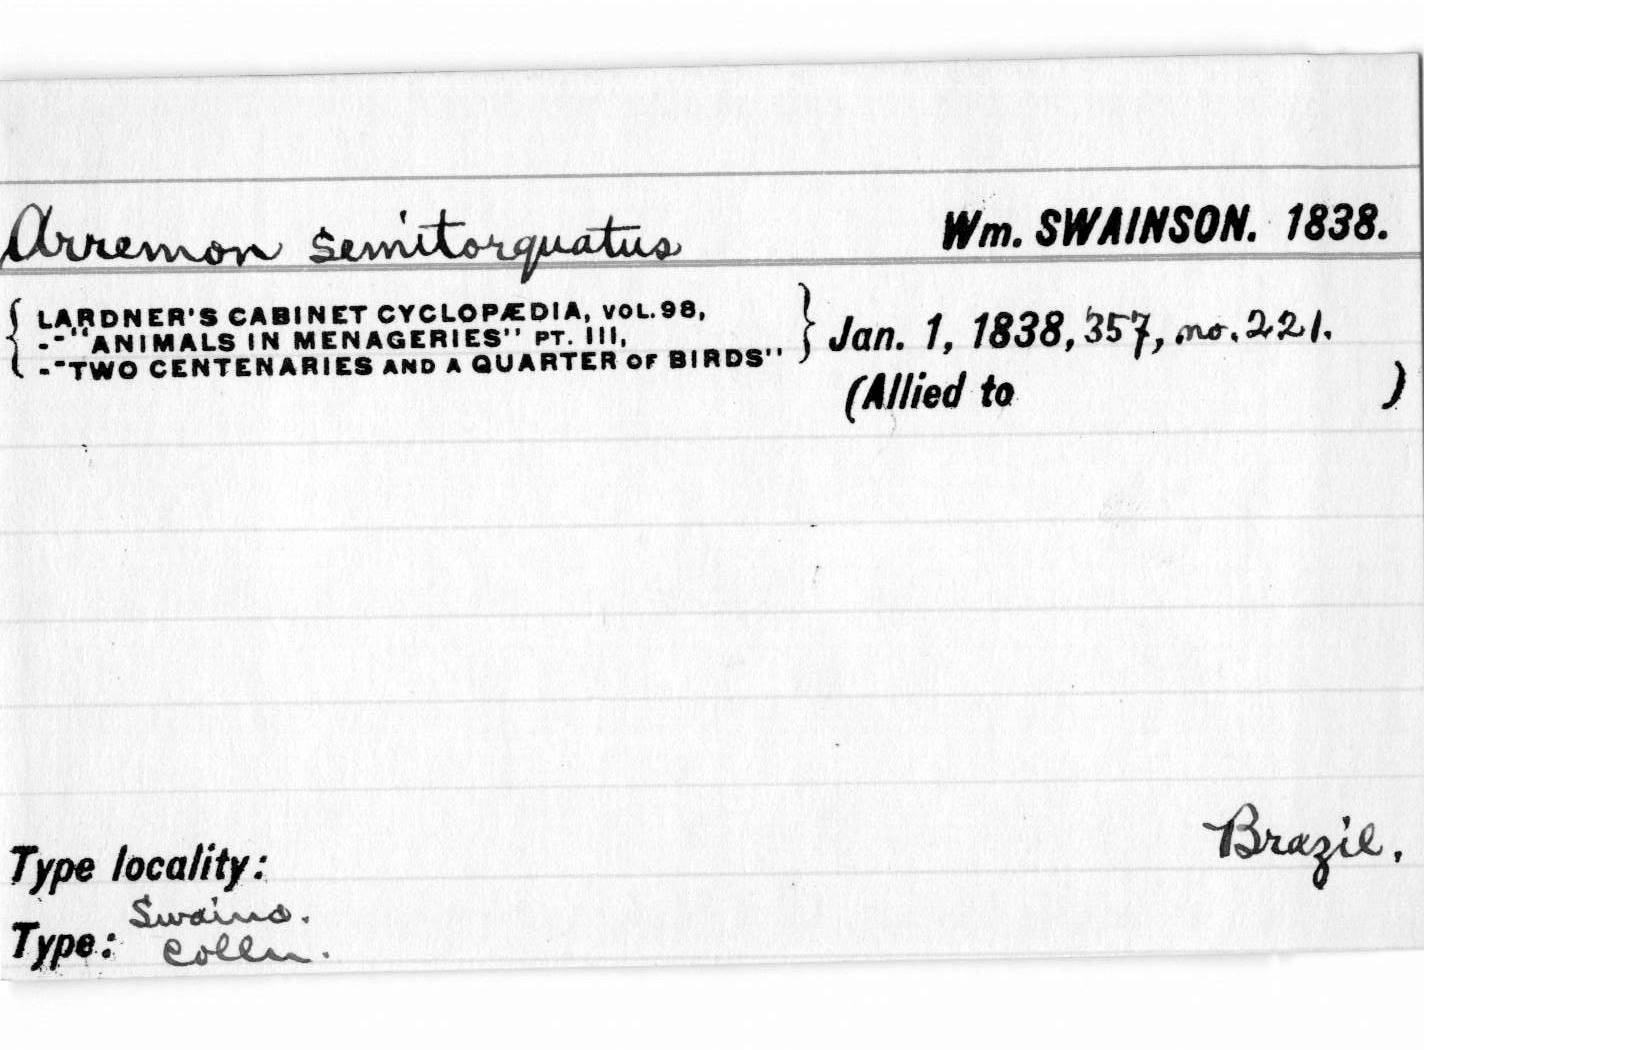 Arremon semitorquatus Wm. SWAINSON. 1838.
{ LARDNER'S CABINET CYCLOPÆDIA, VOL. 98,
-"ANIMALS IN MENAGERIES" PT. III,
-"TWO CENTENARIES AND A QUARTER OF BIRDS" } Jan. 1, 1838, 357, no. 221.
(Allied to )
Brazil.
Type locality:
Swains.
Type: Colln.